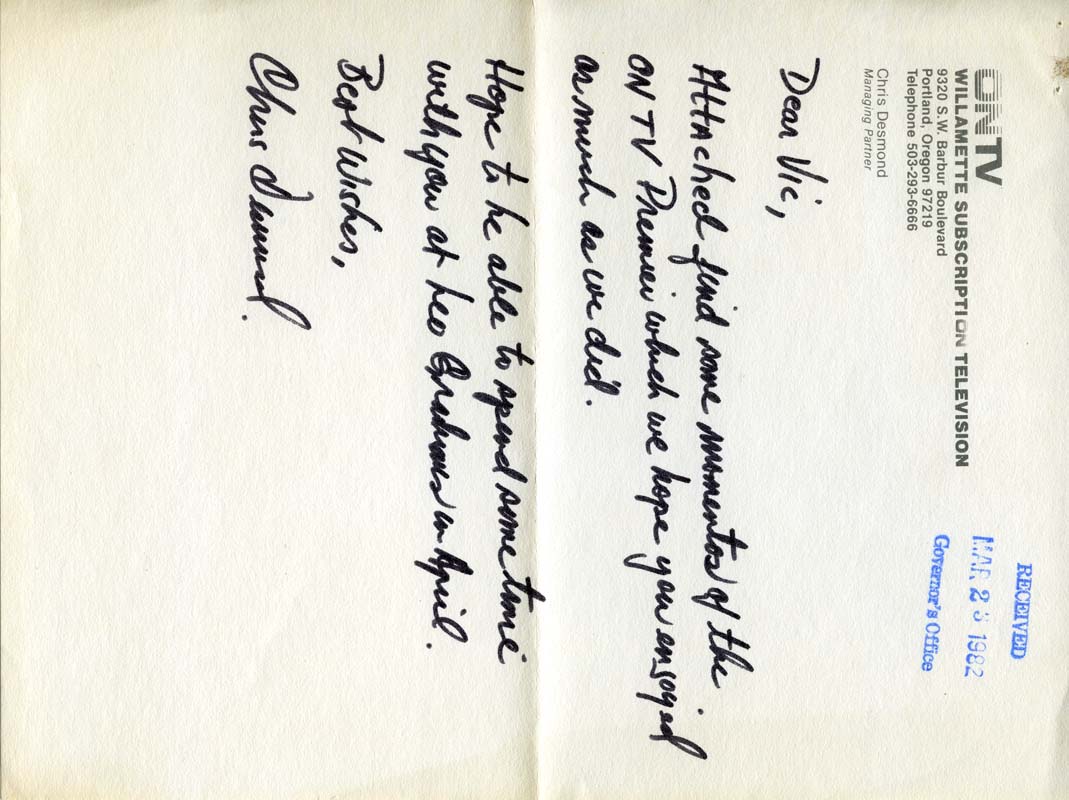 ONTV
WILLAMETTE SUBSCRIPTION TELEVISION
9320 S.W. Barbur Boulevard
Portland, Oregon 97219
Telephone 503-293-6666
Chris Desmond
Managing Partner
RECEIVED
MAR 23 1982
Governor's Office
Dear Vic,
Attached find some momentos of the
ON TV Premier which we hope you enjoyed
as much as we did.
Hope to be able to spend some time
with you at in April.
Best Wishes,
Chris Desmond.